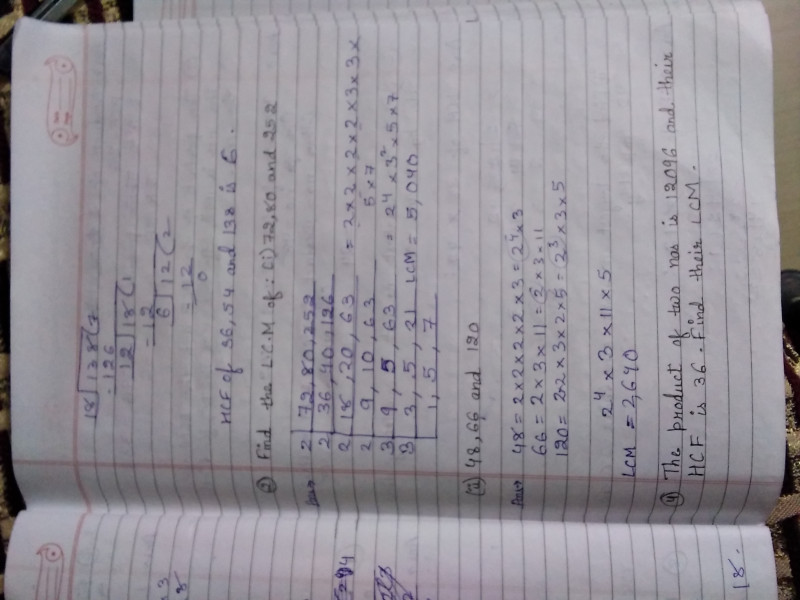 18 | 138 ( 7
- 126
12 | 18 ( 1
- 12
6 | 12 ( 2
- 12
0
HCF of 36, 54 and 138 is 6.
Find the L.C.M of : (i) 72, 80 and 252
Ans
2 | 72, 80, 252
2 | 36, 40, 126
2 | 18, 20, 63 = 2 x 2 x 2 x 2 x 3 x 3 x
2 | 9, 10, 63 5 x 7
3 | 9, 5, 63 = 2⁴ x 3² x 5 x 7
3 | 3, 5, 21 LCM = 5,040
1, 5, 7
(2) 48, 66 and 120
Ans 48 = 2 x 2 x 2 x 2 x 3 = 2⁴ x 3
66 = 2 x 3 x 11 = 2 x 3 x 11
120 = 2 x 2 x 3 x 2 x 5 = 2³ x 3 x 5
2⁴ x 3 x 11 x 5
LCM = 2,640
(4) The product of two nos is 12096 and their
HCF is 36. Find their LCM.
18.